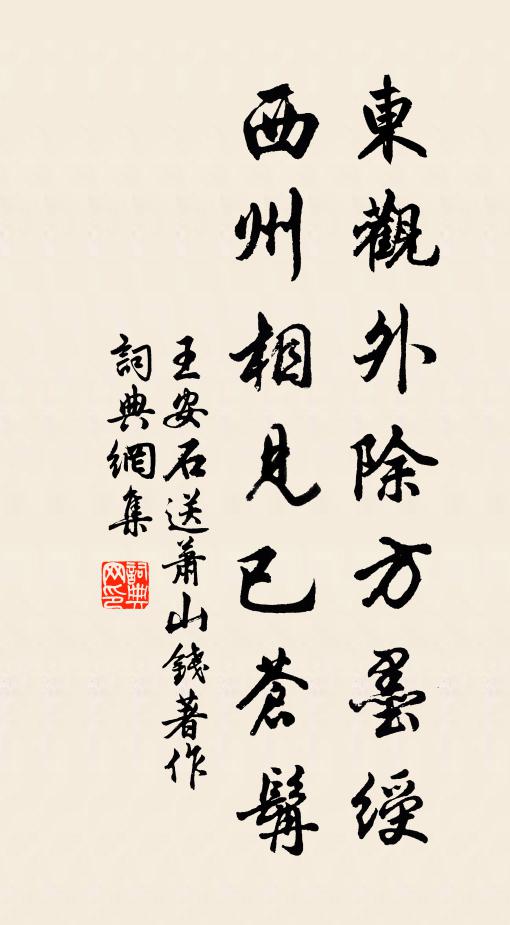 東觀外除方墨綬
西州相見已蒼髯
王安石送蕭山錢著作
詞典網集
詞典网印